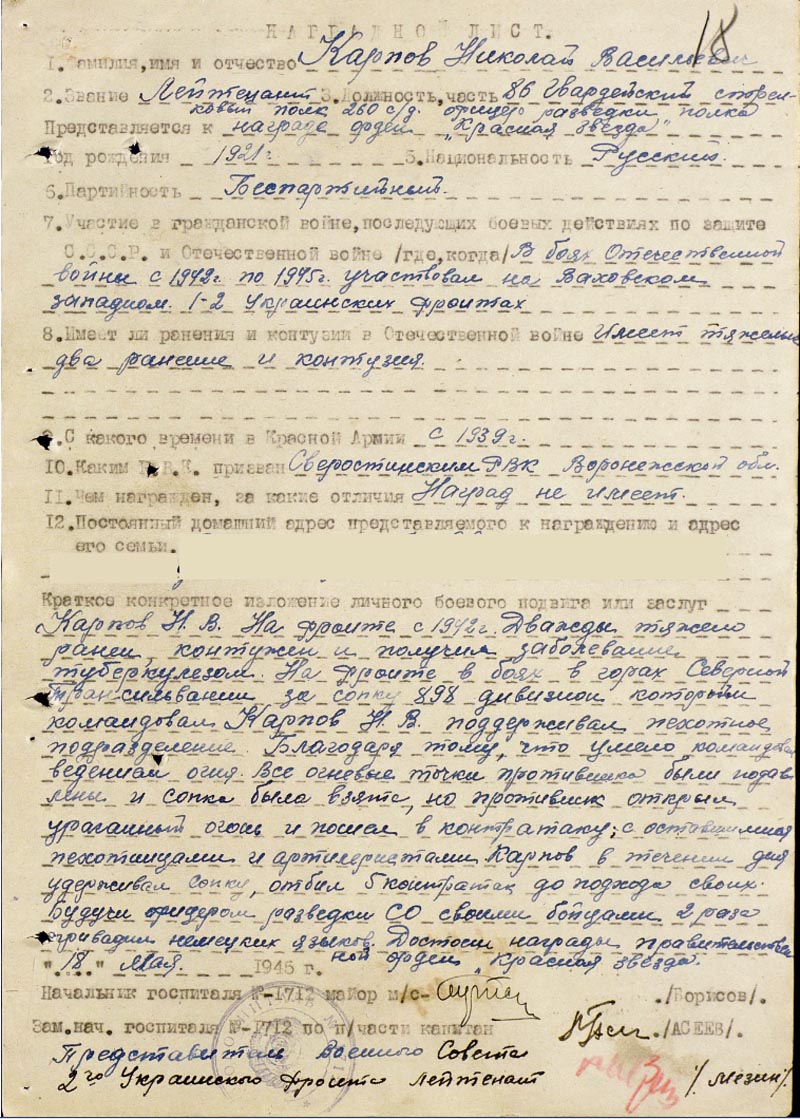 18
НАГРАДНОЙ ЛИСТ.
1. Фамилия, имя и отчество Карпов Николай Васильевич
2. Звание Лейтенант 3. Должность, часть 86 Гвардейский стрел-
ковый полк 260 с/д. офицер разведки полка
Представляется к награде орден "Красная звезда"
Год рождения 1921г. 5. Национальность Русский.
6. Партийность Беспартийный.
7. Участие в гражданской войне, последующих боевых действиях по защите
С.С.С.Р. и Отечественной войне /где, когда/ В боях Отечественной
войны с 1942г. по 1945г. участвовал на Ваховском
западном. 1-2 Украинских фронтах
8. Имеет ли ранения и контузии в Отечественной войне Имеет тяжелых
два ранение и контузия.
9. С какого времени в Красной Армии с 1939г.
10. Каким Р.В.К. призван РВК Воронежсской обл.
11. Чем награжден, за какие отличия Наград не имеет.
12. Постоянный домашний адрес представляемого к награждению и адрес
его семьи.
Краткое конкретное изложение личного боевого подвига или заслуг
Карпов Н.В. На фронте с 1942г. Дважды тяжело
ранен, контужен и получил заболевание
туберкулезом. На фронте в боях в горах Северной
Трансильвании за сопку 898 дивизион которой
командовал Карпов Н.В. поддерживал пехотное
подразделение. Благодаря тому, что умело командовал
ведением огня. Все огневые точки противника были подав
лены и сопка была взята, но противник открыл
ураганный огонь и пошел в контратаку; с оставшимися
пехотинцами и артилеристами Карпов в течении дня
удерживал сопку, отбил 5 контратак до подхода своих.
Будучи офицером разведки со своими бойцами 2 раза
приводил немецких языков. Достоен награды правительствен
ной орден "Красная звезда".
"18" Мая. 1945 г.
Начальник госпиталя №-1712 майор м/с- /Борисов/.
Зам.нач. госпиталя №-1712 по п/части капитан /АСЕЕВ/.
Представитель Военного Совета
2го Украинского фронта лейтенант /Мезин/